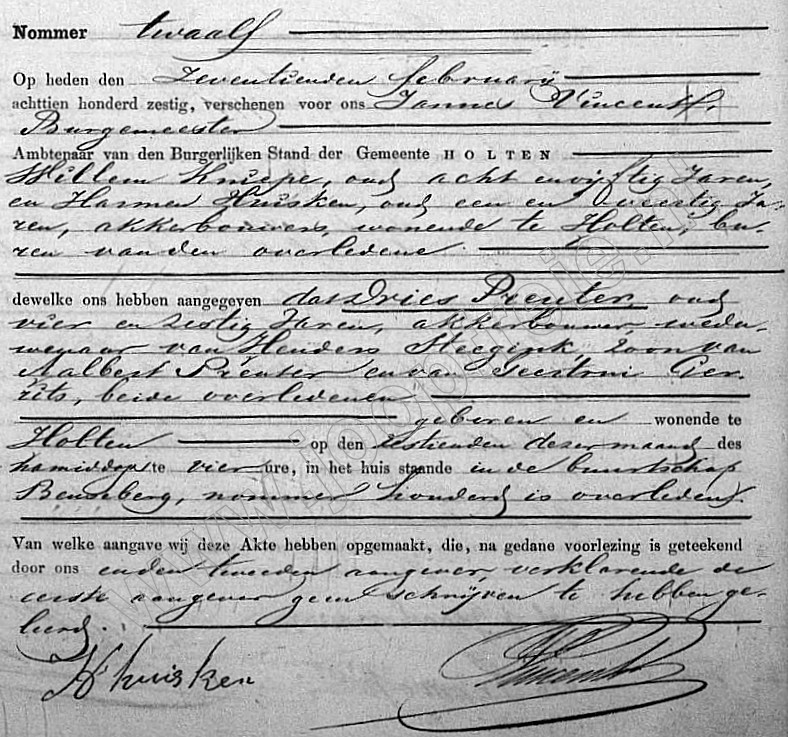 Nommer twaalf
Op heden den Zeventienden february
achttien honderd zestig, verschenen voor ons Jannes Vincent
Burgemeester
Ambtenaar van den Burgerlijken Stand der Gemeente HOLTEN
Willem Kniepe, oud acht en vijftig Jaren,
en Harmen Huisken, oud een en veertig Ja-
ren, akkerbouwers, wonende te Holten, bu-
ren van den overledene
dewelke ons hebben aangegeven dat Dries Preuter, oud
vier en zestig Jaren, akkerbouwer, wedu-
wenaar van Henders Steegink, Zoon van
Aalbert Preuter en van Geertrui Ger-
rits, beide overledenen
geboren en wonende te
Holten op den zestienden dezer maand des
namiddags te vier ure, in het huis staande in de buurtschap
Beuseberg, nommer honderd is overleden.
Van welke aangave wij deze Akte hebben opgemaakt, die, na gedane voorlezing is geteekend
door ons en den tweeden aangever, verklarende de
eerste aangever geen schrijven te hebben ge-
leerd.
H huisken
Vincent
www.joopvoie.nl